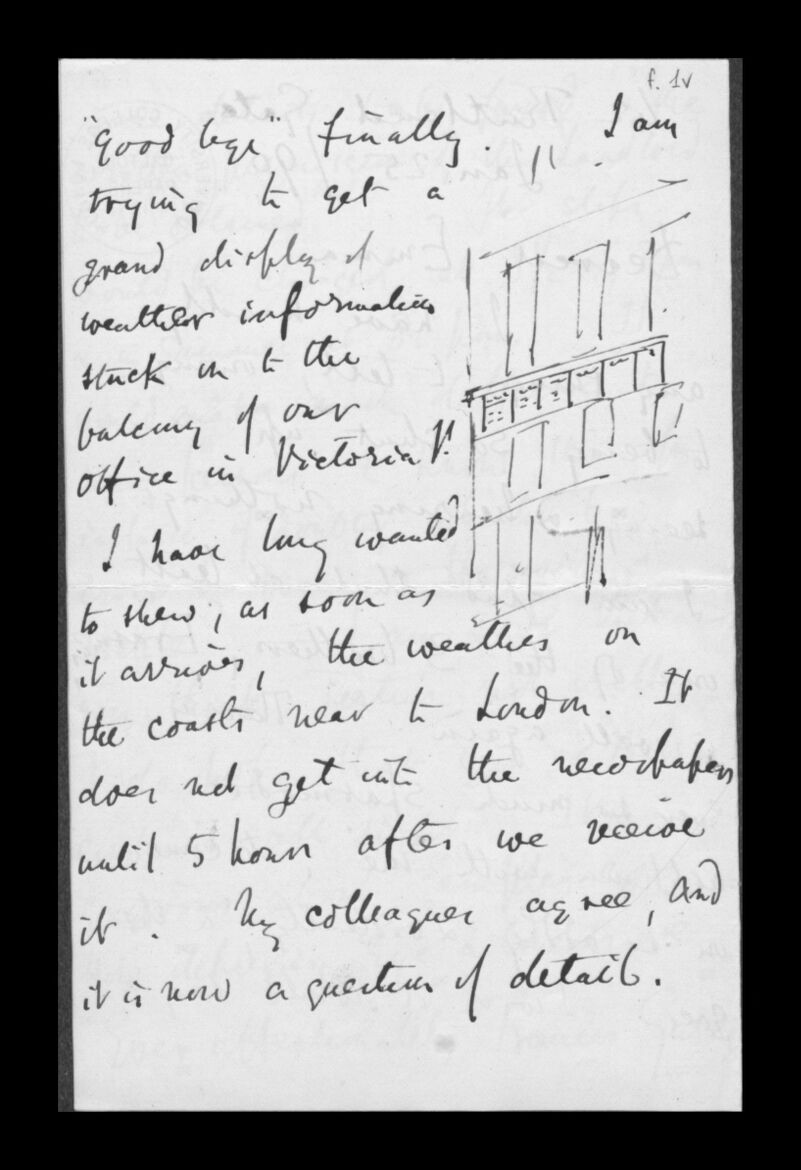 f. 1v
"Good bye" finally. I am
trying to get a
grand display of
weather information
stuck on to the
balcony of our
office in Victoria St
I have long wanted
to shew, as soon as
it arrives, the weather on
the coasts near to London. It
does not get into the newspapers
until 5 hours after we receive
it. My colleagues agree, and
it is now a question of detail.